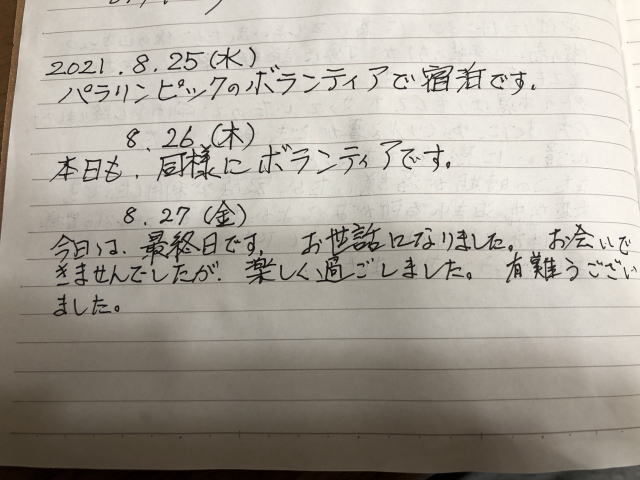 2021.8.25(水)
パラリンピックのボランティアで宿泊です.
8.26(木)
本日も、同様にボランティアです。
8.27(金)
今日は、最終日です。 お世話になりました。 お会いで
きませんでしたが、楽しく過ごしました。 有難うござい
ました。